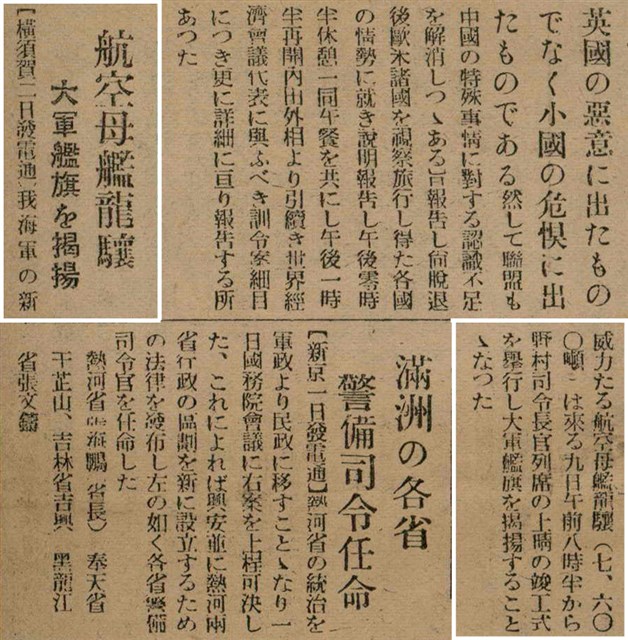 英國の惡意に出たもの
でなく小國の危惧に出
たものである然して聯盟も
中國の特殊事情に對する認識不足
を解消しつゝある旨報告し尙脫退
後歐米諸國を視察旅行し得た各國
の情勢に就き說明報告し午後零時
半休憩一同午餐を共にし午後一時
半再開內田外相より引續き世界經
濟會議代表に與ふべき訓令案細目
につき更に詳細に亘り報告する所
あつた
航空母艦龍驤
大軍艦旗を揭揚
【橫須賀二日發電通】我海軍の新
威力たる航空母艦龍驤（七、六〇
〇噸）は來る九日午前八時半から
野村司令長官列席の上晴の竣工式
を擧行し大軍艦旗を揭揚すること
ゝなつた
滿洲の各省
警備司令任命
【新京一日發電通】熱河省の統治を
軍政より民政に移すことゝなり一
日國務院會議に右案を上程可決し
た、これによれば興安並に熱河兩
省行政の區劃を新に設立するため
の法律を發布し左の如く各省警備
司令官を任命した
熱河省張海鵬（省長） 奉天省
于芷山、吉林省吉興 黑龍江
省張文鑄